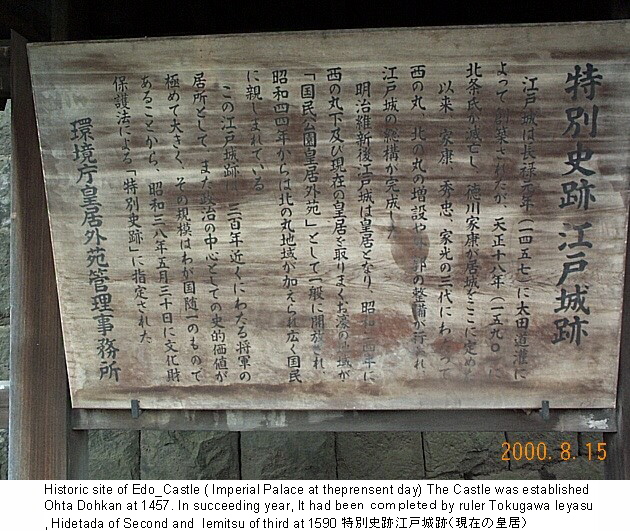 特別史跡 江戸城跡
江戸城は長禄元年(一四五七)に太田道灌に
よって創築されたが、天正十八年(一五九〇)に
北条氏が滅亡し、徳川家康が居城をここに定め
以来、家康、秀忠、家光の三代にわたって
西の丸、北の丸の増設や外郭の整備が行われ、
江戸城の総構が完成した
明治維新後江戸城は皇居となり、昭和 四年に
西の丸下及び現在の皇居を取りまくお濠の地域が
「国民公園皇居外苑」として一般に開放され、
昭和四四年からは北の丸地域が加えられ広く国民
に親しまれている
この江戸城跡 三百年近くにわたる将軍の
居所として、また政治の中心としての史的価値が
極めて大きく、その規模はわが国随一のもので
あることから、昭和三八年五月三十日に文化財
保護法による「特別史跡」に指定された
環境庁皇居外苑管理事務所
2000.8.15
Historic site of Edo_Castle ( Imperial Palace at theprensent day) The Castle was established
Ohta Dohkan at 1457. In succeeding year, It had been completed by ruler Tokugawa Ieyasu
, Hidetada of Second and Iemitsu of third at 1590 特別史跡江戸城跡(現在の皇居)